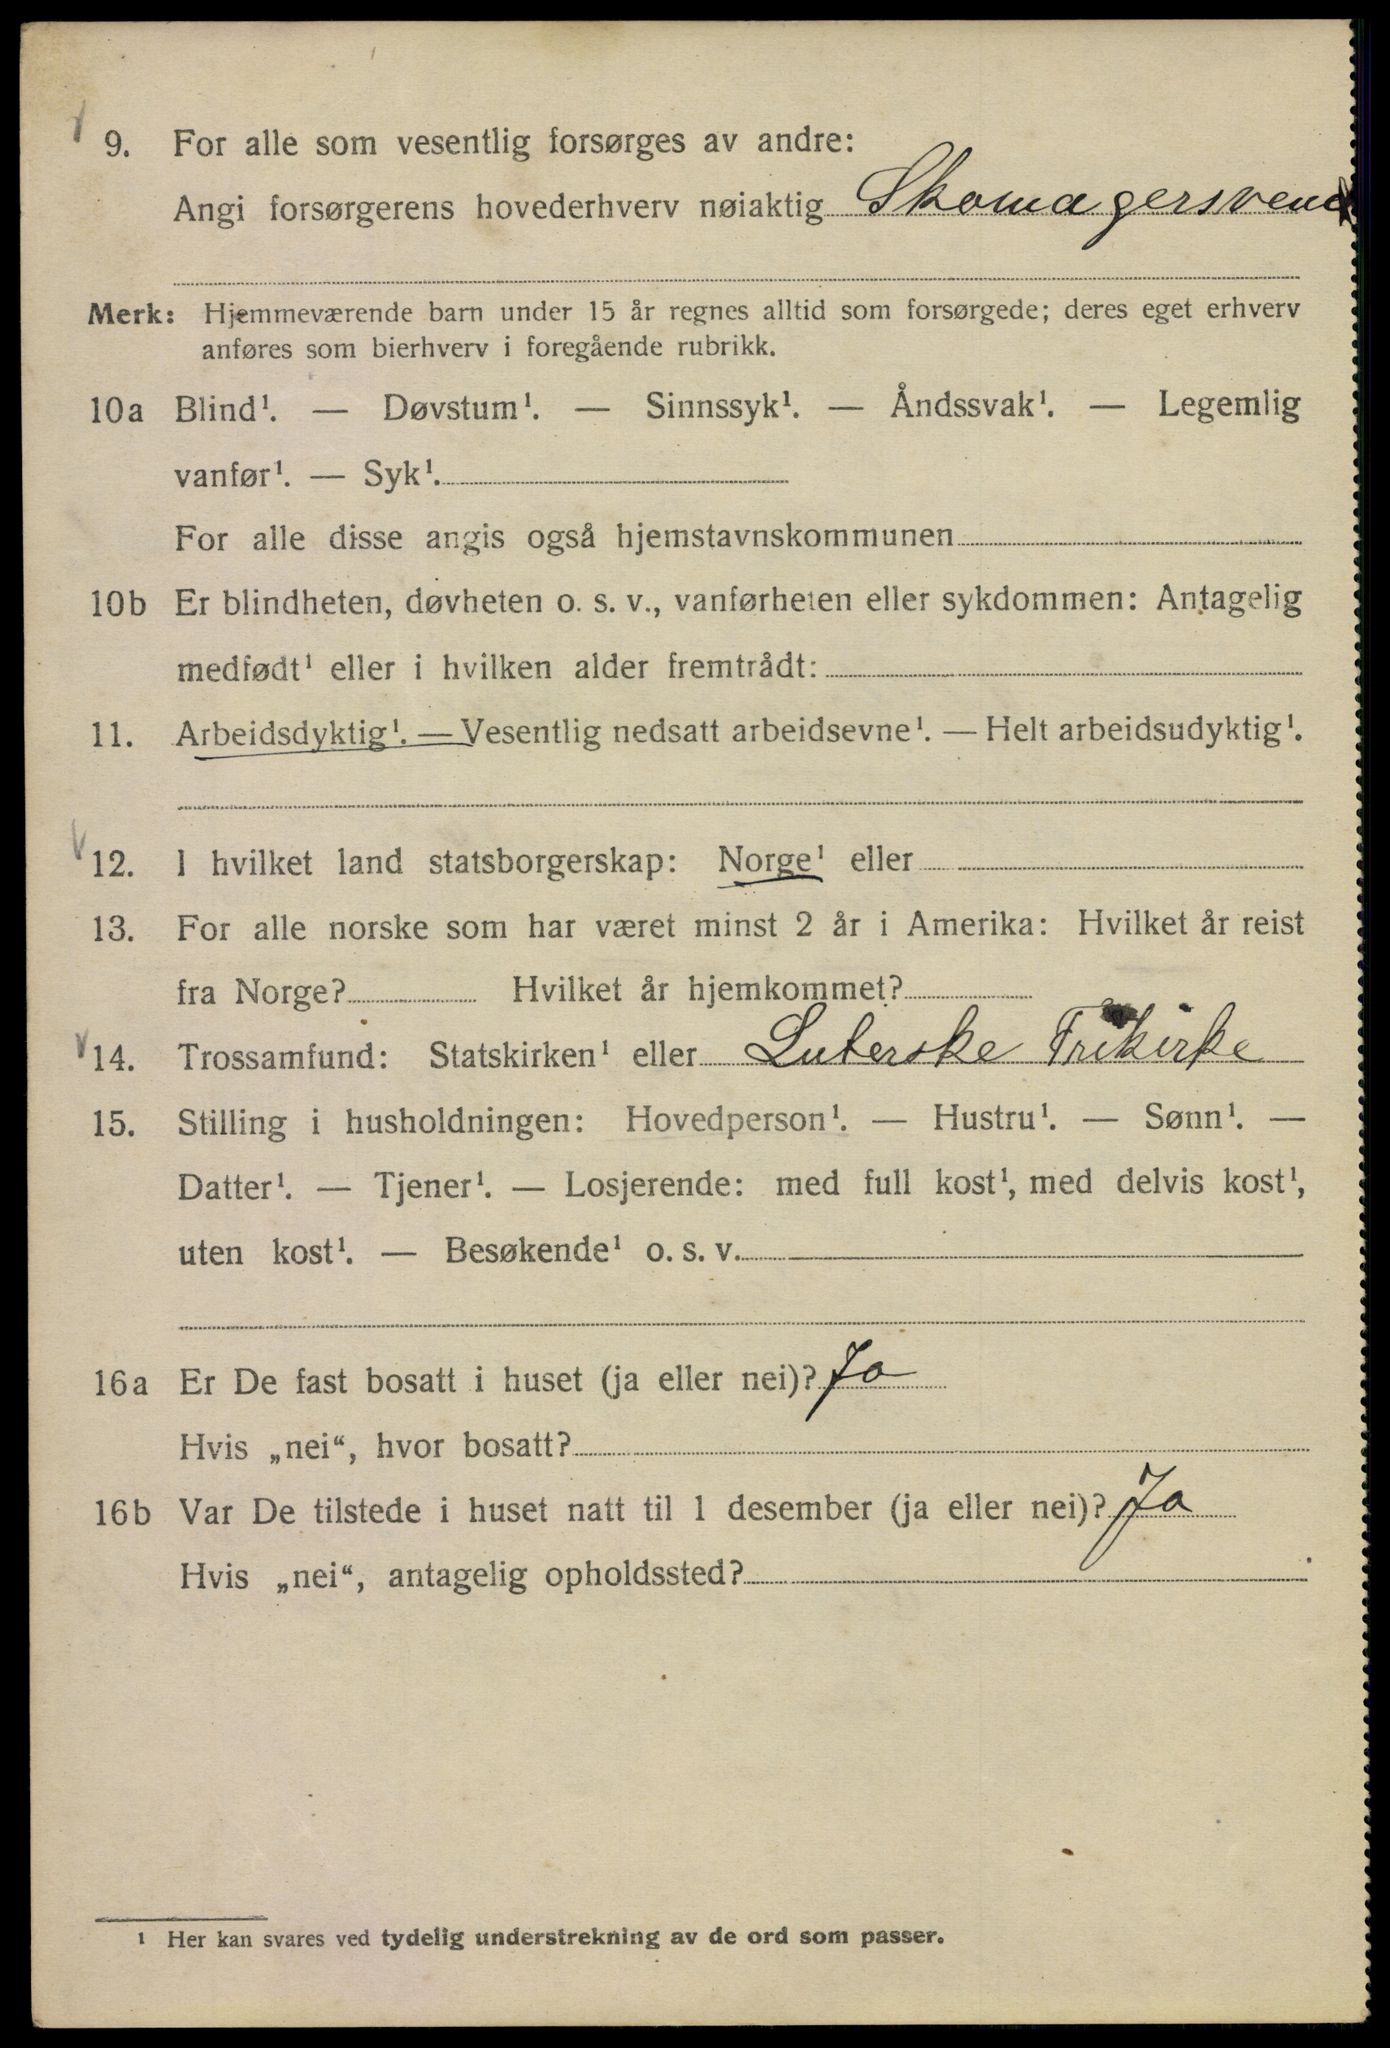 9. For alle som vesentlig forsørges av andre:
Angi forsørgerens hovederhverv nøiaktig Skomagersvend
Merk: Hjemmeværende barn under 15 år regnes alltid som forsørgede; deres eget erhverv
anføres som bierhverv i foregående rubrikk.
10a Blind¹. — Døvstum¹. — Sinnssyk¹. — Åndssvak¹. — Legemlig
vanfør¹. — Syk¹.
For alle disse angis også hjemstavnskommunen
10b Er blindheten, døvheten o. s. v., vanførheten eller sykdommen: Antagelig
medfødt¹ eller i hvilken alder fremtrådt:
11. Arbeidsdyktig¹. — Vesentlig nedsatt arbeidsevne¹. — Helt arbeidsudyktig¹.
12. I hvilket land statsborgerskap: Norge¹ eller
13. For alle norske som har været minst 2 år i Amerika: Hvilket år reist
fra Norge? Hvilket år hjemkommet?
14. Trossamfund: Statskirken¹ eller Luterske Frikirke
15. Stilling i husholdningen: Hovedperson¹. — Hustru¹. — Sønn¹. —
Datter¹. — Tjener¹. — Losjerende: med full kost¹, med delvis kost¹,
uten kost¹. — Besøkende¹ o. s. v.
16a Er De fast bosatt i huset (ja eller nei)? Ja
Hvis „nei“, hvor bosatt?
16b Var De tilstede i huset natt til 1 desember (ja eller nei)? Ja
Hvis „nei“, antagelig opholdssted?
¹ Her kan svares ved tydelig understrekning av de ord som passer.